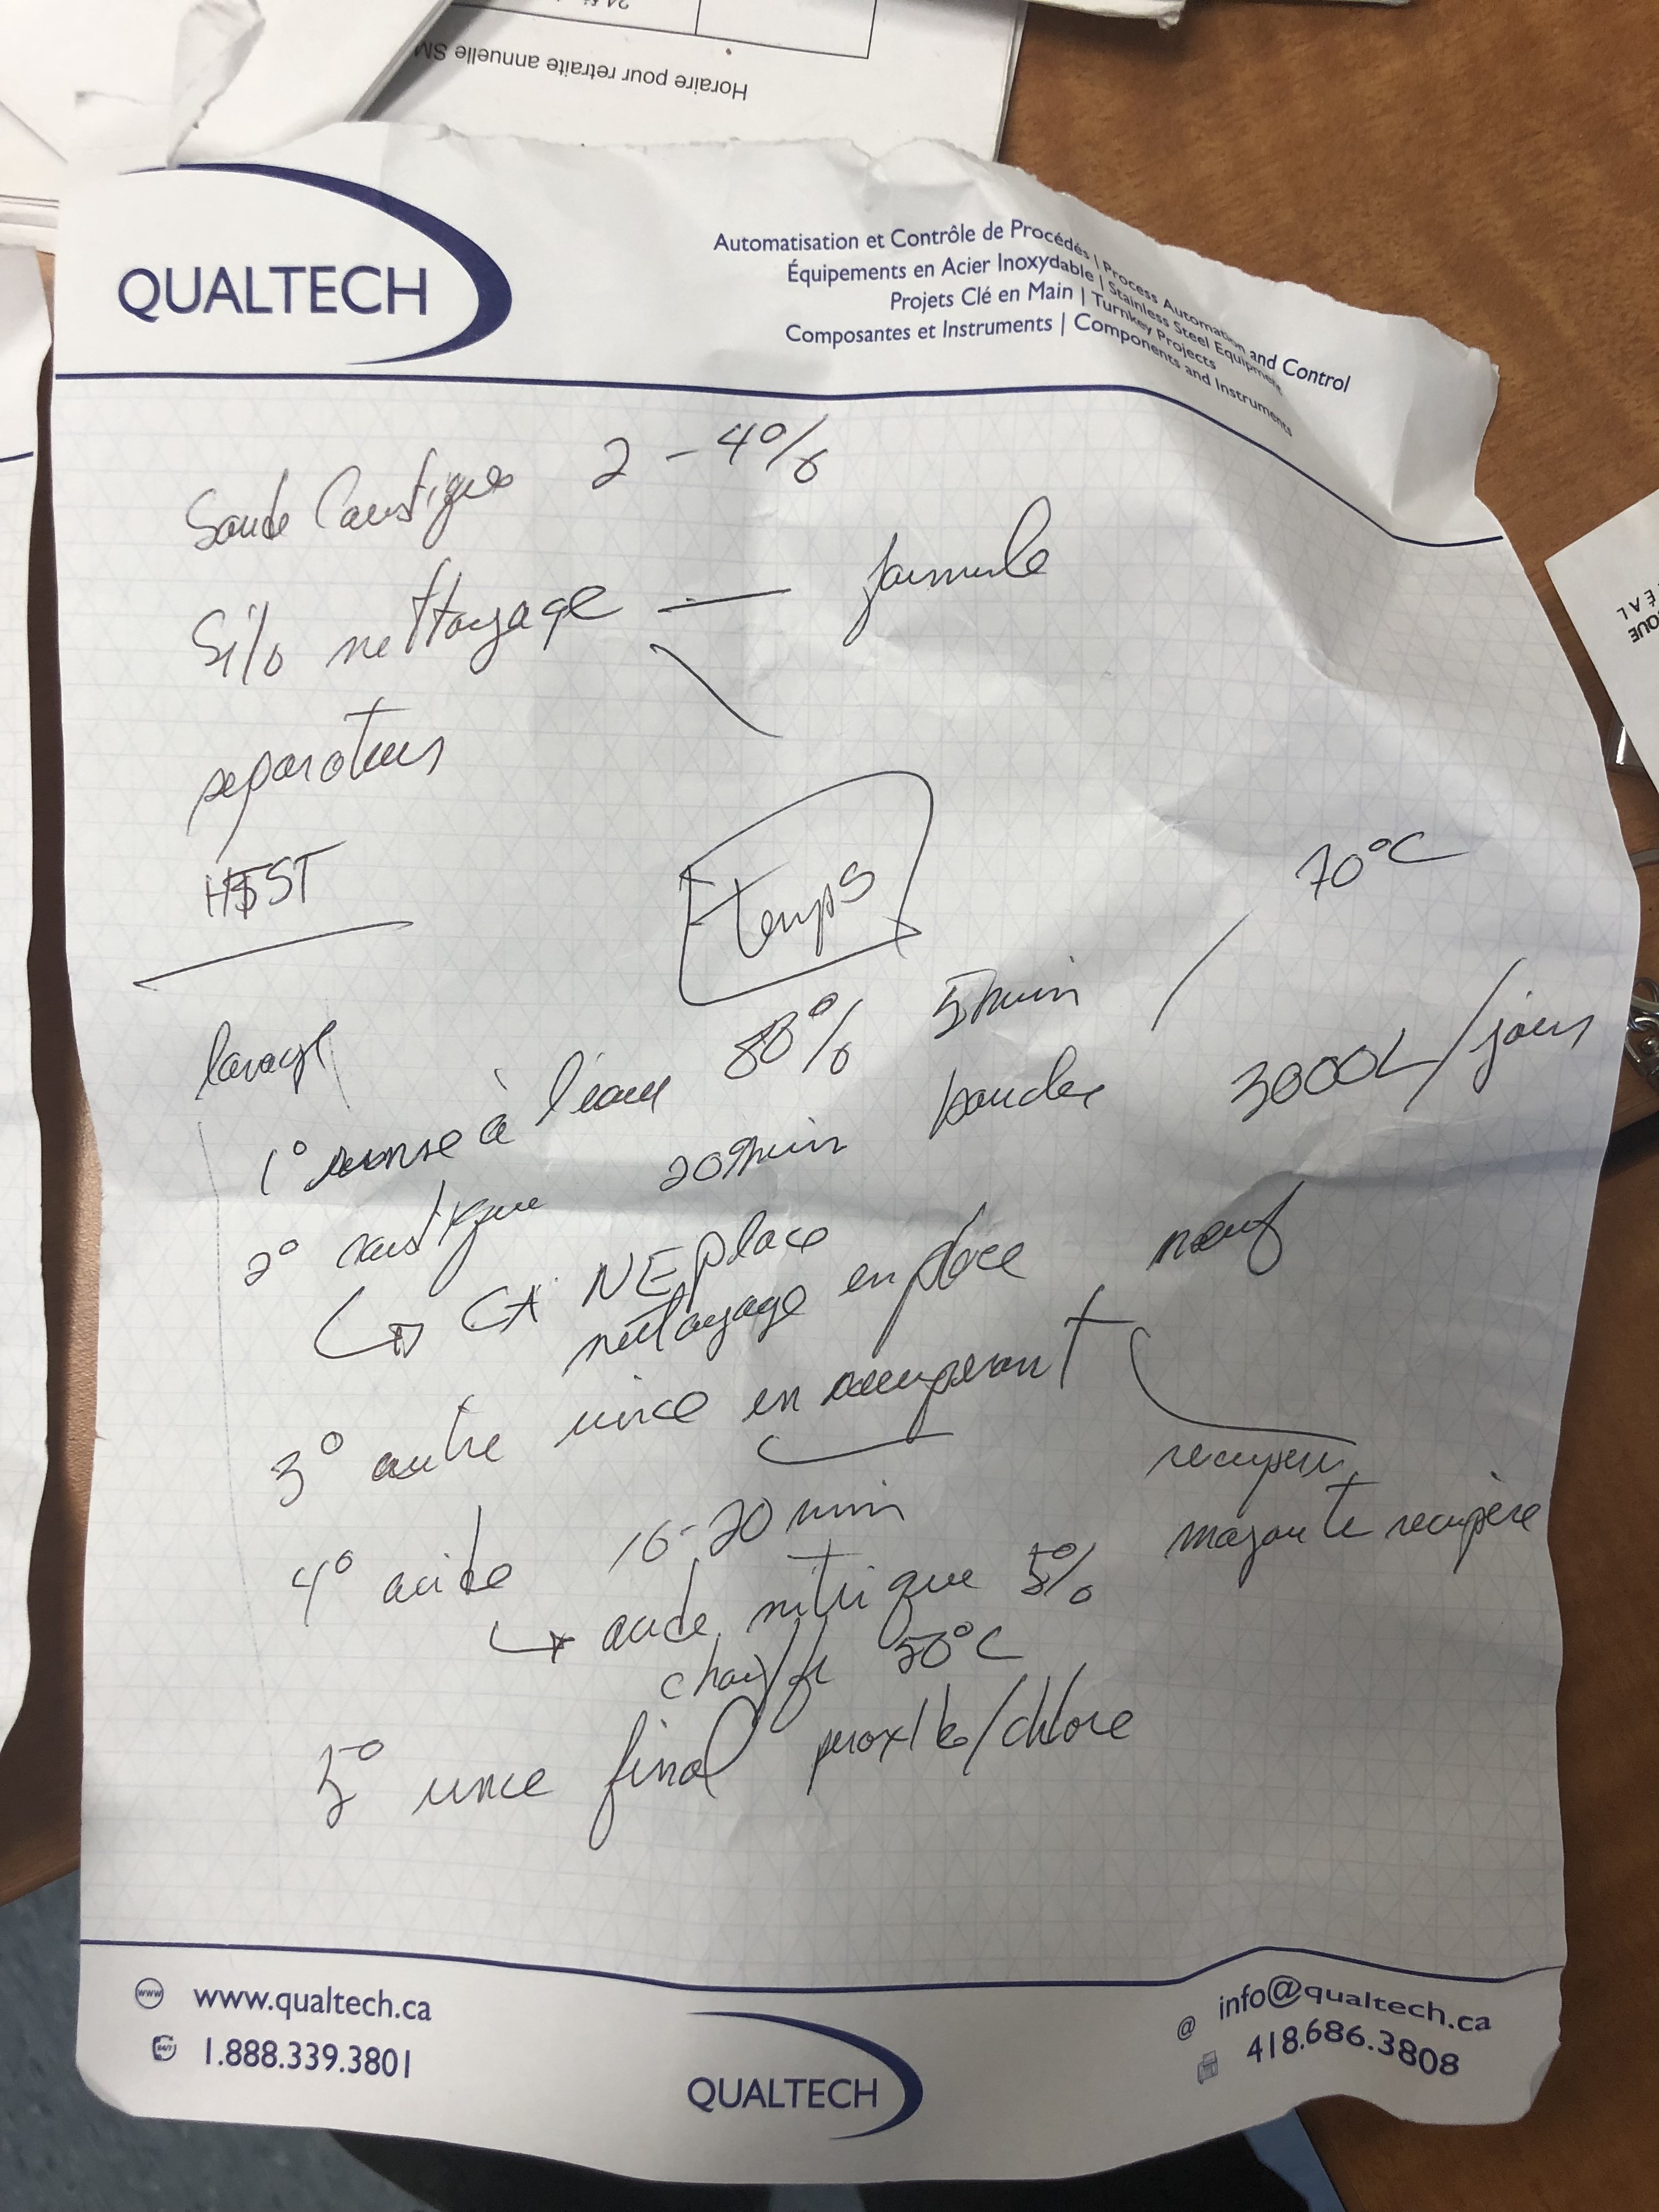 Horaire pour retraite annuelle SM
QUALTECH
Automatisation et Contrôle de Procédés | Process Automation and Control
Équipements en Acier Inoxydable | Stainless Steel Equipment
Projets Clé en Main | Turnkey Projects
Composantes et Instruments | Components and Instruments
Soude Caustique 2-4%
Silo nettoyage — formule
separateurs
HTST
temps
70°C
lavage
1° rinse à l'eau 80% 5min /
2° caustique 20min boucler 3000L/jours
↳ CA NEPlace
nettoyage en place neuf
3° autre rince en recuperant
recuperer
4° acide 16-20 min mazoute recupère
↳ acide nitrique 5%
chauffé 50°C
5° rince final peroxide/chlore
www.qualtech.ca
1.888.339.3801
QUALTECH
info@qualtech.ca
418.686.3808